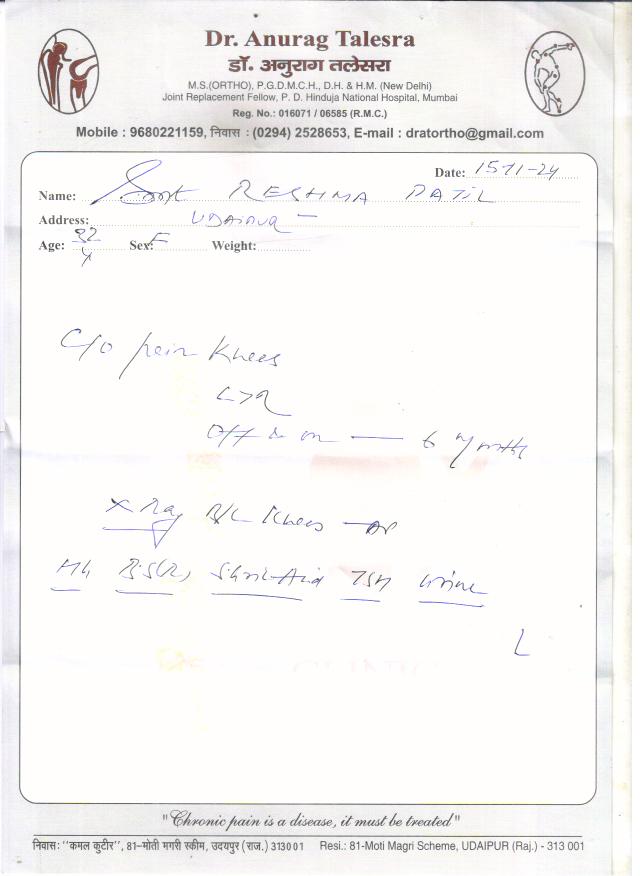 Dr. Anurag Talesra
डॉ. अनुराग तलेसरा
M.S.(ORTHO), P.G.D.M.C.H., D.H. & H.M. (New Delhi)
Joint Replacement Fellow, P. D. Hinduja National Hospital, Mumbai
Reg. No.: 016071 / 06585 (R.M.C.)
Mobile : 9680221159, निवास : (0294) 2528653, E-mail : dratortho@gmail.com
Date: 15-11-24
Name: Smt RESHMA PATIL
Address: UDAIPUR
Age: 32 Y Sex: F Weight:
C/o pain Knees
L>R
Off & on — 6 month
X Ray B/L Knees — AP
Hb BS(R) TSH Urine
"Chronic pain is a disease, it must be treated"
निवास: "कमल कुटीर", 81-मोती मगरी स्कीम, उदयपुर (राज.) 313001 Resi.: 81-Moti Magri Scheme, UDAIPUR (Raj.) - 313 001